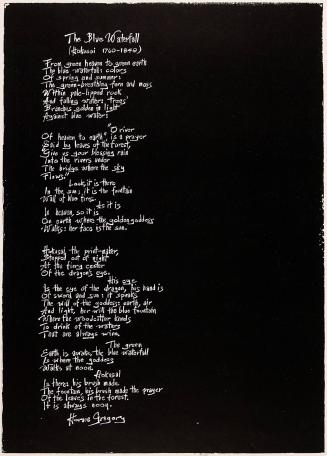 The Blue Waterfall
(Hokusai 1760-1849)
From green heaven to green earth
The blue waterfall: colors
Of spring and summer:
The green-breathing fern and moss
Within pale-lipped rock
And falling waters, trees'
Branches golden in light
Against blue water:
"O river
Of heaven to earth", is a prayer
Said by leaves of the forest,
"Give us your blessing rain
Into the rivers under
The bridge where the sky
Flows."
Look, it is there
In the sun; it is the fountain
Wall of blue fires.
As it is
In heaven, so it is
On earth where the golden goddess
Walks: her face is the sun.
Hokusai, the print-maker,
Stepped out of night
At the fiery center
Of the dragon's eye.
His eye
Is the eye of the dragon, his hand is
Of sword and sun: it speaks
The will of the goddess: earth, air
And light, her will the blue fountain
Where the woodcutter kneels
To drink of the waters
That are always wine.
The green
Earth is awake, the blue waterfall
Is where the goddess
Walks at noon.
Hokusai
Is there: his brush made
The fountain, his brush made the prayer
Of the leaves in the forest.
It is always noon.
Horace Gregory